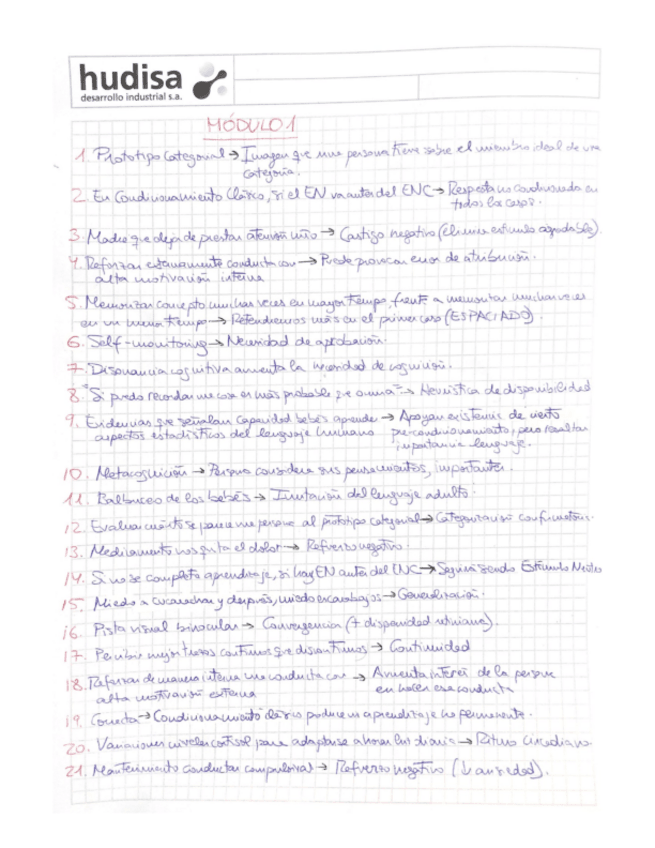 hudisa
desarrollo industrial s.a.
MÓDULO 1
1. Prototipo Categorial → Imagen que una persona tiene sobre el miembro ideal de una
categoría.
2. En Condicionamiento Clásico, si el EN va antes del ENC → Respuesta no condicionada en
todos los casos.
3. Madre que deja de prestar atención niño → Castigo negativo (elimina estímulo agradable).
4. Reforzar conducta con → Puede provocar error de atribución.
alta motivación interna
5. Memorizar concepto muchas veces en mayor tiempo, frente a memorizar muchas veces
en un menor tiempo → Retendremos más en el primer caso (ESPACIADO).
6. Self-monitoring → Necesidad de aprobación.
7. Disonancia cognitiva aumenta la necesidad de cognición.
8. "Si puedo recordar una cosa es más probable que ocurra" → Heurística de disponibilidad
9. Evidencias que señalan capacidad bebés aprende → Apoyan existencia de cierto
aspectos estadísticos del lenguaje humano pre-condicionamiento, pero resaltan
importancia lenguaje.
10. Metacognición → Persona considera sus pensamientos, importantes.
11. Balbuceo de los bebés → Imitación del lenguaje adulto.
12. Evaluar cuánto se parece una persona al prototipo categorial → Categorización confirmatoria.
13. Medicamento nos quita el dolor → Refuerzo negativo.
14. Si no se completa aprendizaje, si hay EN antes del ENC → Seguirá siendo Estímulo Neutro
15. Miedo a cucarachas y después, miedo escarabajos → Generalización.
16. Pista visual binocular → Convergencia (+ disparidad retiniana).
17. Percibir mejor trazos continuos que discontinuos → Continuidad
18. Reforzar de manera interna una conducta con → Aumenta interés de la persona
alta motivación externa en hacer esa conducta
19. Correcta → Condicionamiento clásico produce un aprendizaje no permanente.
20. Variaciones niveles cortisol para adaptarse a horas luz diaria → Ritmo circadiano
21. Mantenimiento conductas compulsivas → Refuerzo negativo (↓ ansiedad).